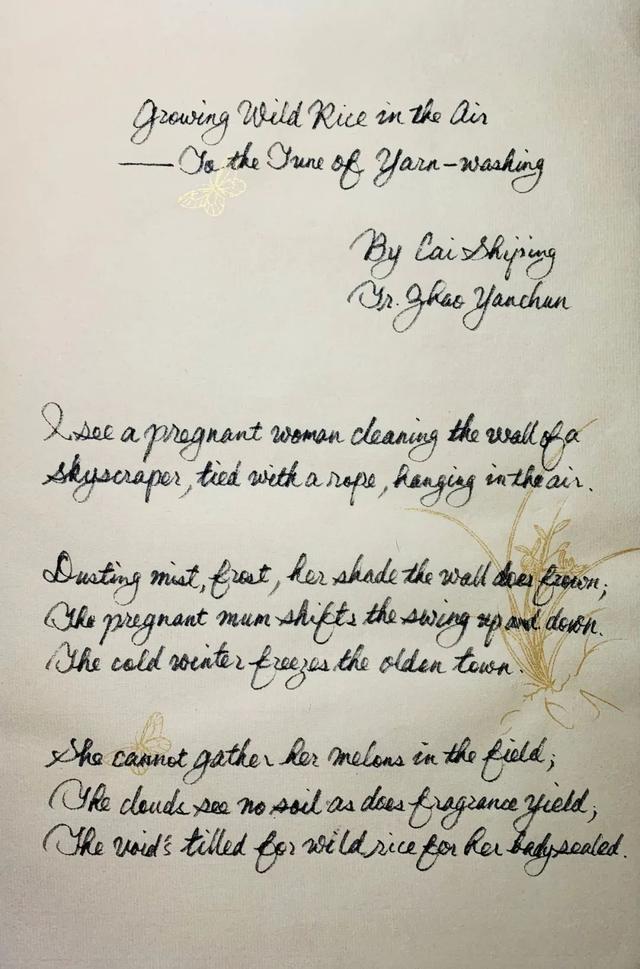 Growing Wild Rice in the Air
—— To the Tune of Yarn-washing
By Cai Shiping
Tr. Zhao Yanchun
I see a pregnant woman cleaning the wall of a
skyscraper, tied with a rope, hanging in the air.
Dusting mist, frost, her shade the wall does frown;
The pregnant mum shifts the swing up and down.
The cold winter freezes the olden town.
She cannot gather her melons in the field;
The clouds see no soil as does fragrance yield;
The void's tilled for wild rice for her body sealed.